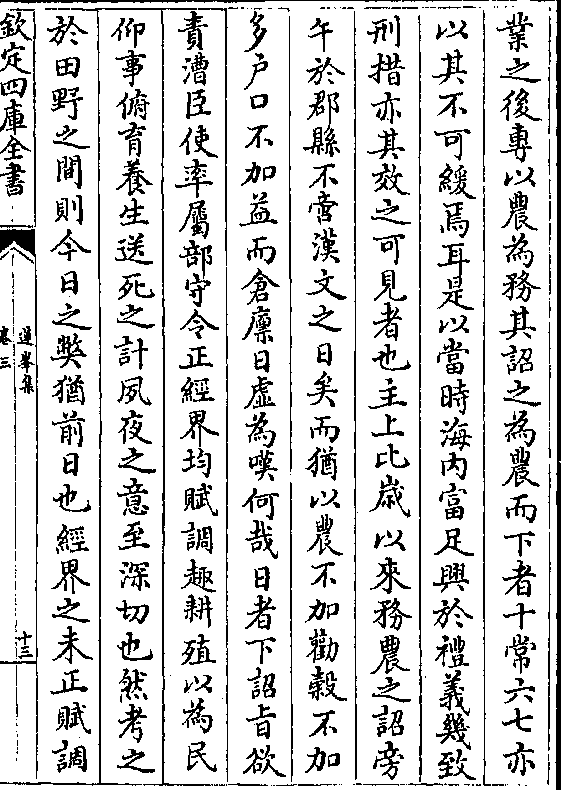 業之後專以農為務其詔之為農而下者十常六七亦
以其不可緩焉耳是以當時海内富足興於禮義幾致
刑措亦其效之可見者也主上比歳以來務農之詔旁
午於郡縣不啻漢文之日矣而猶以農不加勸榖不加
多户口不加益而倉廩日虛為嘆何哉日者下詔㫖欲
責漕臣使率屬部守令正經界均賦調趣耕殖以為民
仰事俯育養生送死之計夙夜之意至深切也然考之
於田野之間則今日之弊猶前日也經界之未正賦調
欽定四庫全書
蓮峯集
卷三
十三